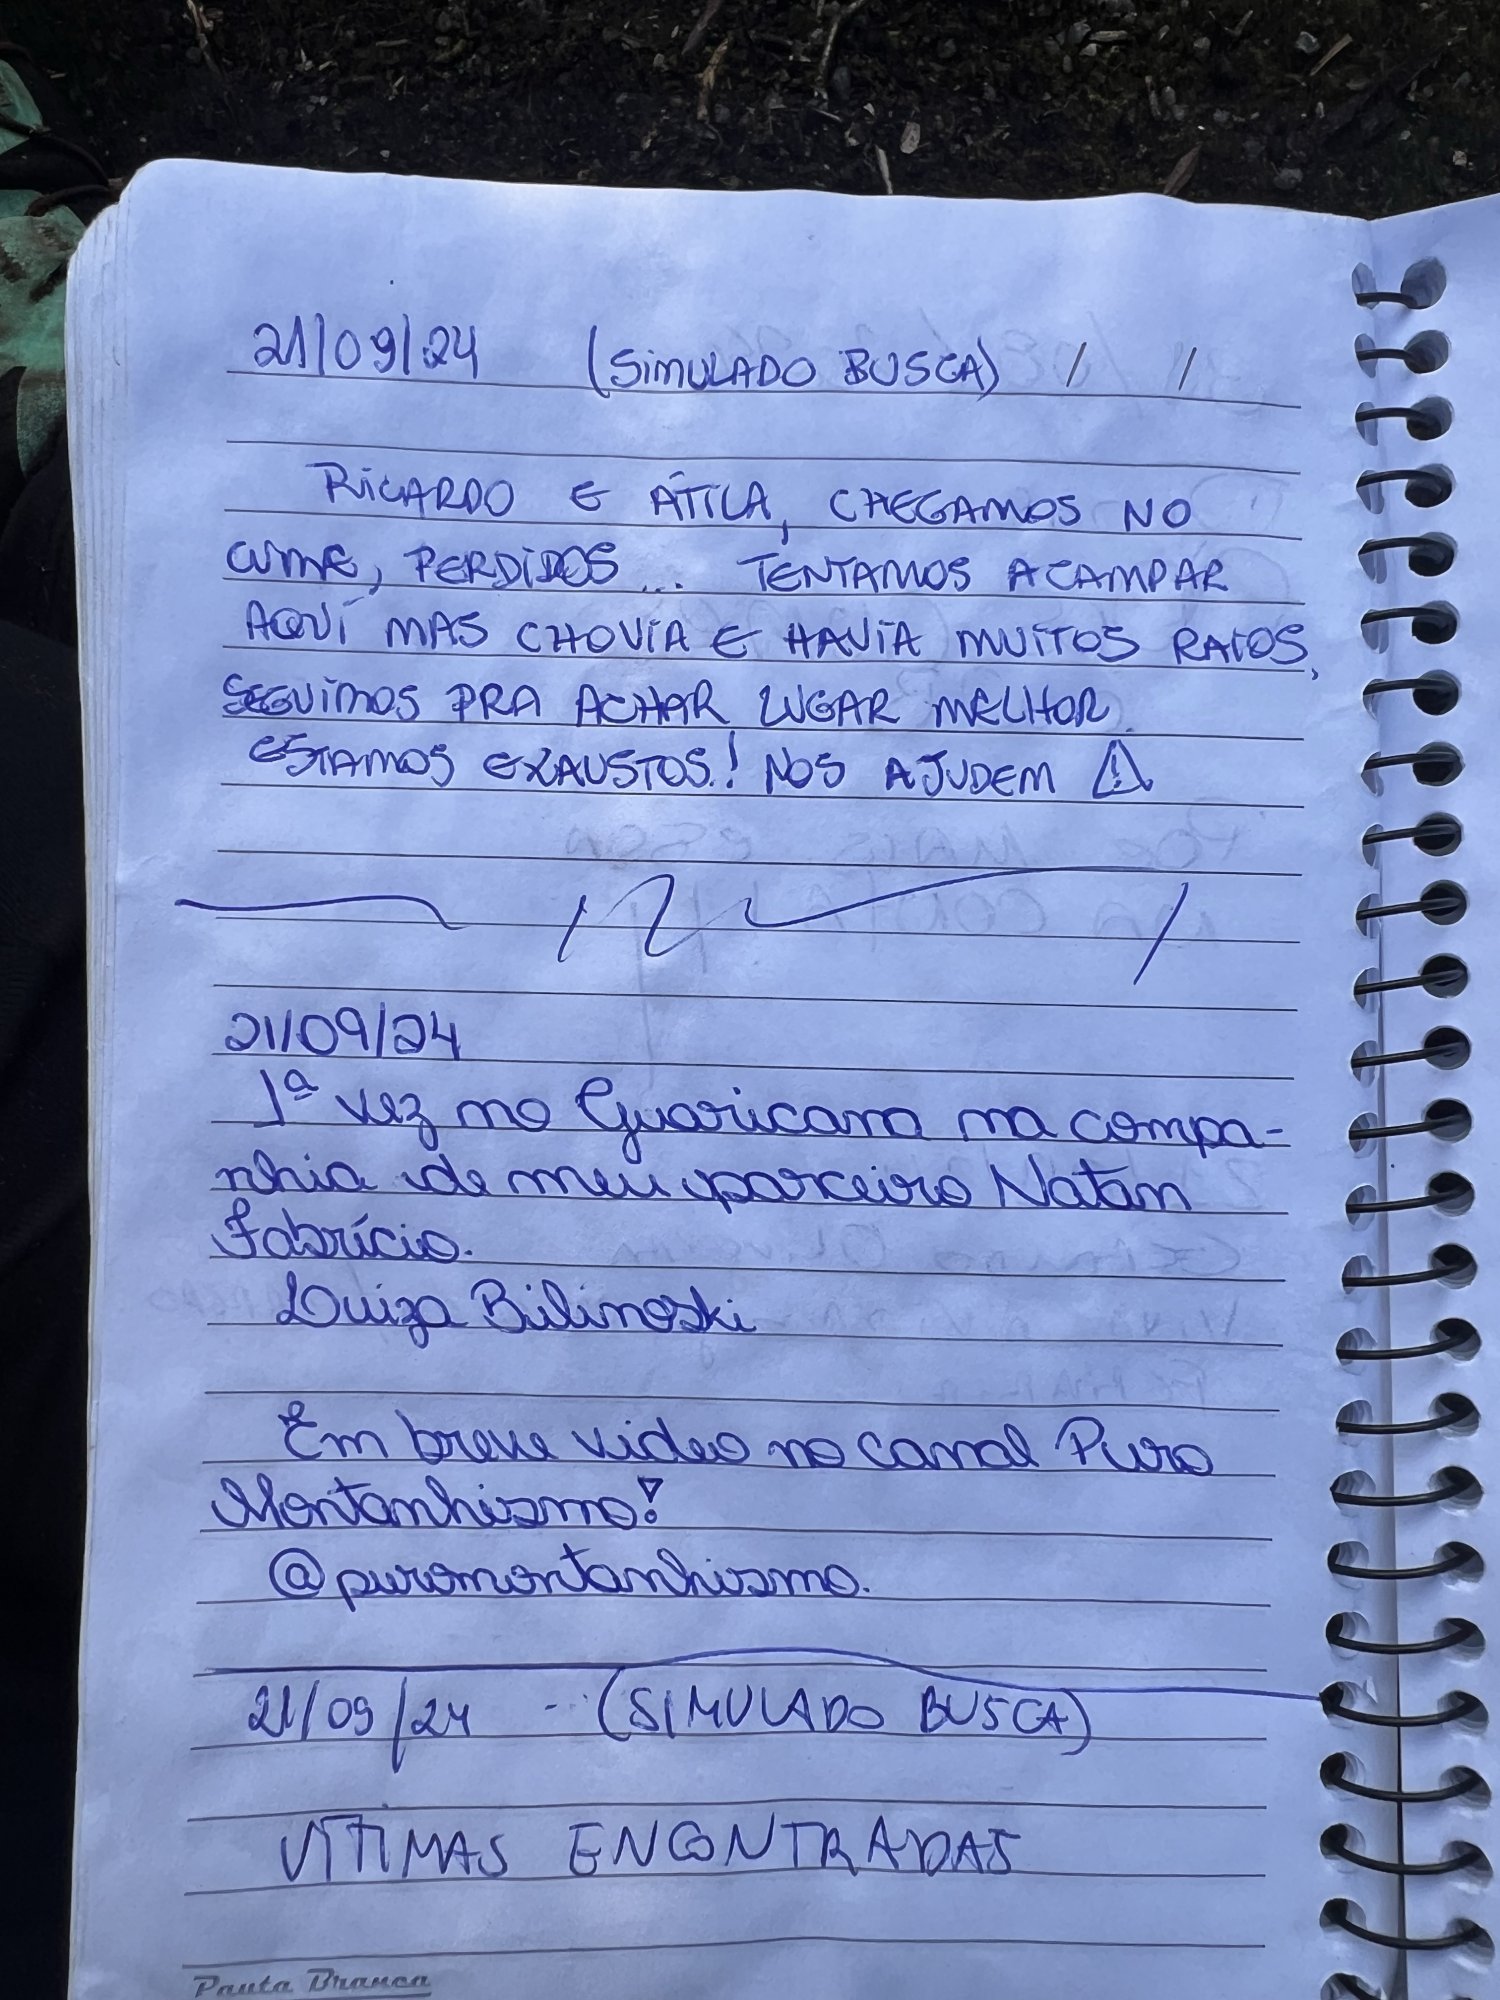 21/09/24 (SIMULADO BUSCA) / /
RICARDO E ÁTILA, CHEGAMOS NO
CUME, PERDIDOS... TENTAMOS ACAMPAR
AQUÍ MAS CHOVIA E HAVIA MUITOS RAIOS,
SEGUIMOS PRA ACHAR LUGAR MELHOR.
ESTAMOS EXAUSTOS! NOS AJUDEM ⚠
21/09/24
1ª vez no Guaricana na compa-
nhia de meu parceiro Natan
Fabrício.
Luiza Bilinoski
Em breve video no canal Puro
Montanhismo!
@puromontanhismo.
21/09/24 - (SIMULADO BUSCA)
VÍTIMAS ENCONTRADAS
Pauta Branca